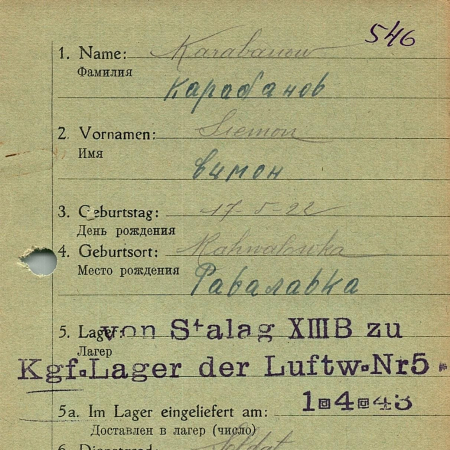 546
1. Name: Karabanow
Фамилия
Карабанов
2. Vornamen: Siemon
Имя
вимон
3. Geburtstag: 17-5-22
День рождения
4. Geburtsort:
Место рождения
Равалавка
5. Lager: von Stalag XIIIB zu
Лагер
Kgf.-Lager der Luftw.-Nr5.
1.4.43
5a. Im Lager eingeliefert am:
Доставлен в лагер (число)
6. Dienstgrad: Soldat